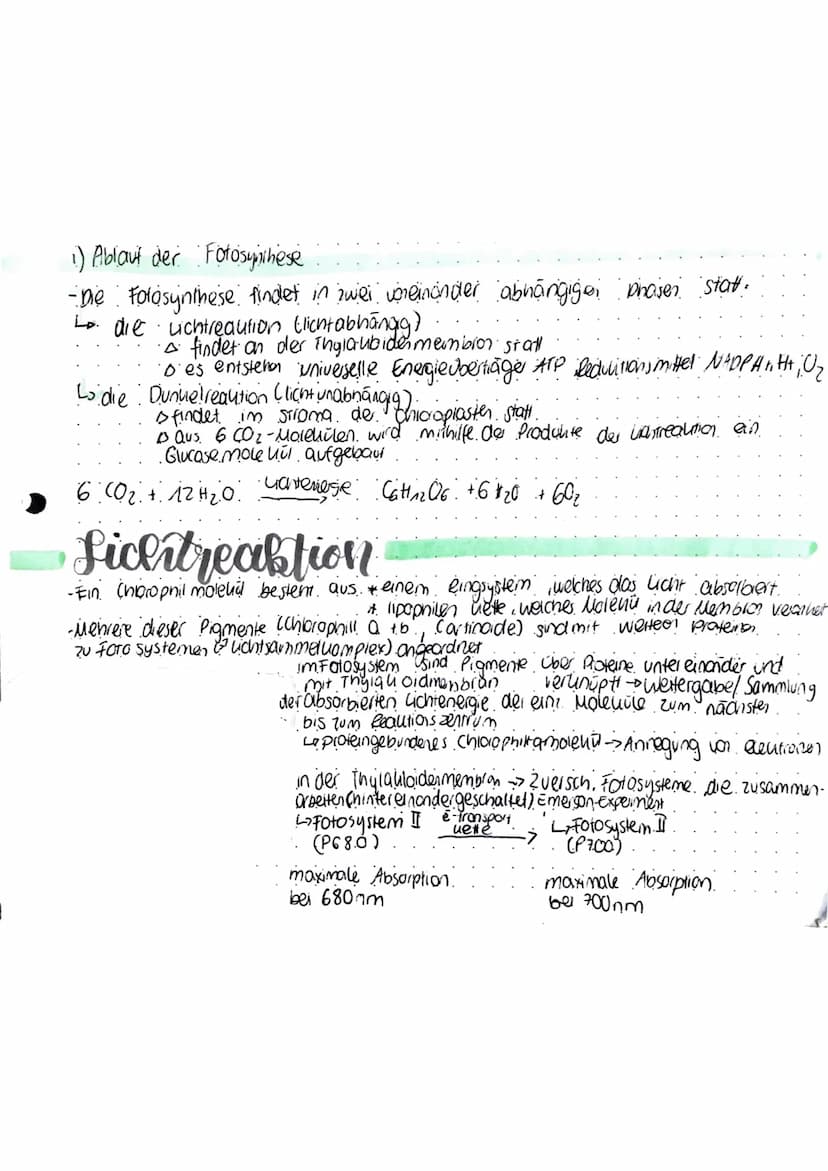 1) Ablauf der Fotosynthese
- Die Fotosynthese findet in zwei voneinander abhängigen Phasen statt.
↳ die Lichtreaktion (lichtabhängig)
▷ findet an der Thylakoidenmembran statt
▷ es entstehen universelle Energieüberträger ATP Reduktionsmittel NADPH+H+, O2
↳ die Dunkelreaktion (lichtunabhängig)
▷ findet im Stroma der Chloroplasten statt.
▷ aus 6 CO2-Molekülen wird mithilfe der Produkte der Lichtreaktion ein
Glucosemolekül aufgebaut
6 CO2 + 12 H2O Lichtenergie → C6H12O6 + 6 H2O + 6O2
Lichtreaktion
- Ein Chlorophil molekül besteht aus * einem Ringsystem, welches das Licht absorbiert
* lipophilen Kette, welches Molekül in der Membran verankert
- Mehrere dieser Pigmente (Chlorophill a + b, Cartinoide) sind mit weiteren Proteinen
zu Fotosystemen (Lichtsammelkomplex) angeordnet
im Fotosystem sind Pigmente über Proteine untereinander und
mit Thylakoidmembran verknüpft → Weitergabe/Sammlung
der absorbierten Lichtenergie der eine Moleküle zum nächsten
bis zum Reaktionszentrum
↳ proteingebundenes Chlorophil a molekül → Anregung von Elektronen
in der Thylakoidenmembran → 2 versch. Fotosysteme die zusammen-
arbeiten (hintereinandergeschaltet) Emerson-Experiment
↳ Fotosystem II e- transport kette → ↳ Fotosystem II
(P680) (P700)
maximale Absorption maximale Absorption
bei 680nm bei 700nm